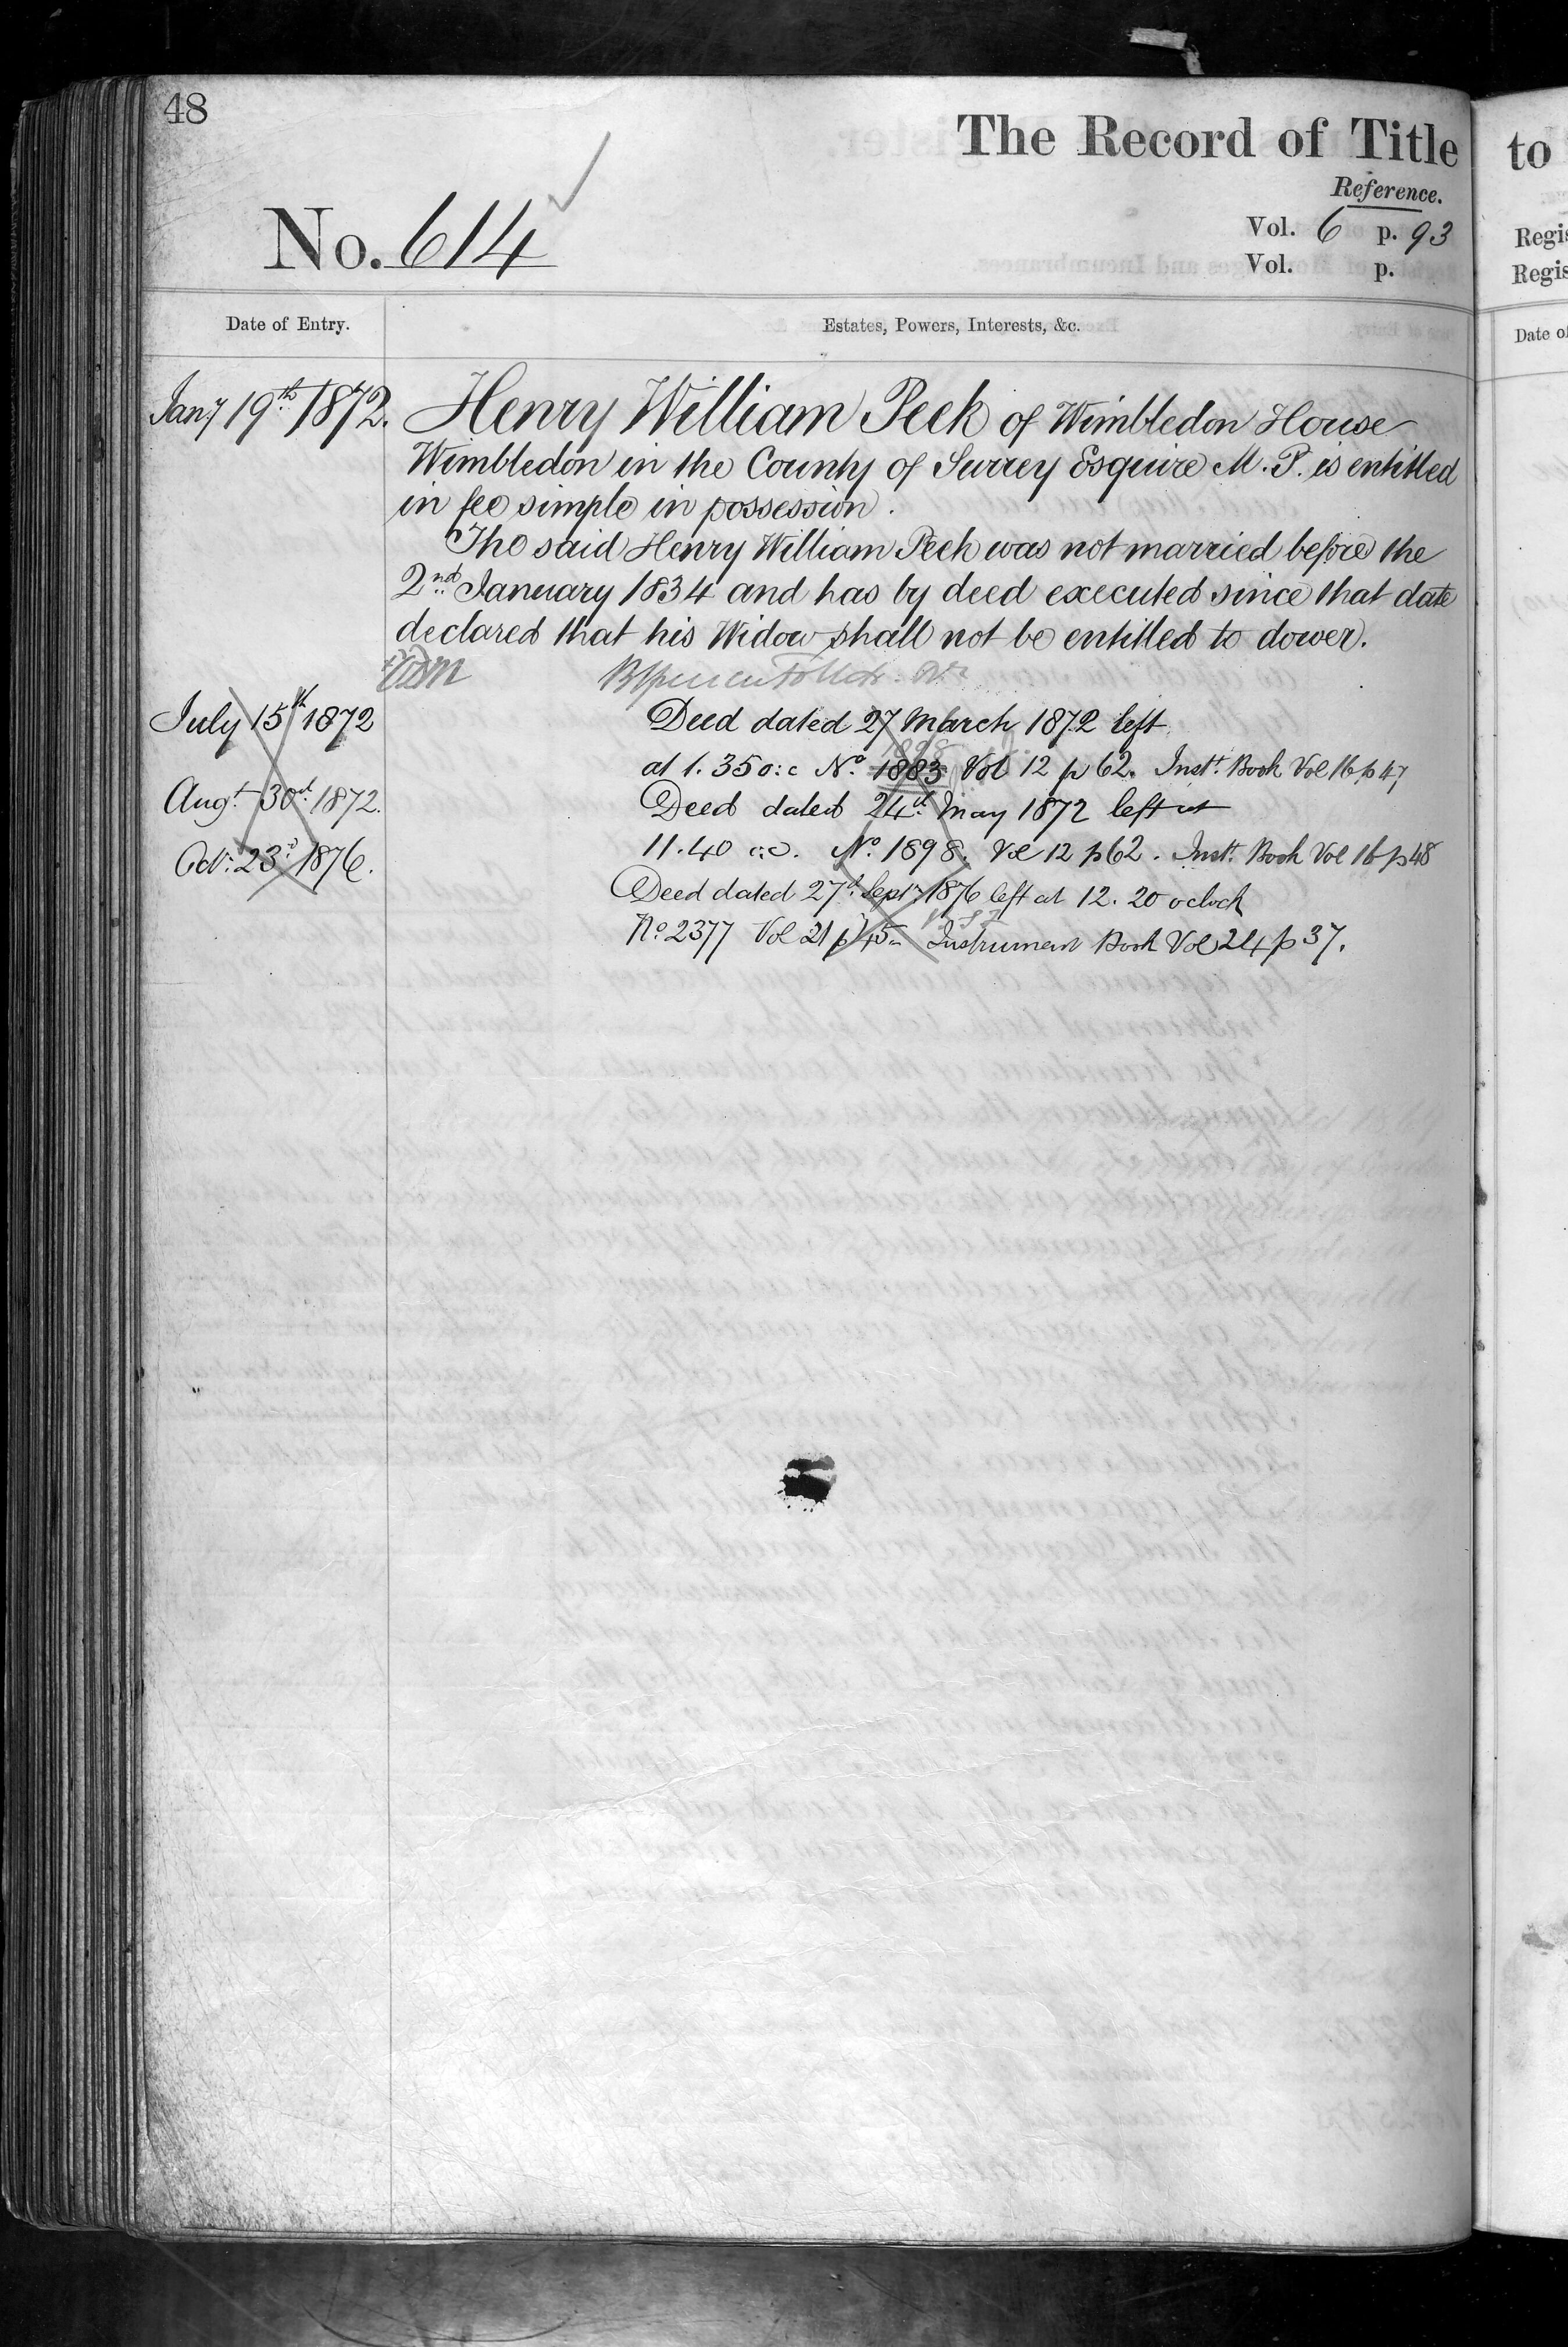 48
The Record of Title
to
Reference.
No. 614
Vol. 6 p. 93
Vol. p.
Regis
Regis
Date of Entry.
Estates, Powers, Interests, &c.
Date of
Jany 19th 1872. Henry William Peek of Wimbledon House
Wimbledon in the County of Surrey Esquire M. P. is entitled
in fee simple in possession.
The said Henry William Peek was not married before the
2nd January 1834 and has by deed executed since that date
declared that his Widow shall not be entitled to dower.
July 15th 1872 Deed dated 27 March 1872 left
at 1.35 o:c No. 1883 Vol 12 p 62. Instt. Book Vol 16 p 47
Augt. 30th 1872. Deed dated 24th May 1872 left at
11.40 o:c. No. 1898. Vol 12 p 62. Instt. Book Vol 16 p 48
Octr. 23rd 1876. Deed dated 27th Septr. 1876 left at 12.20 oclock
No. 2377 Vol 21 p 45 Instrument Book Vol 24 p 37.